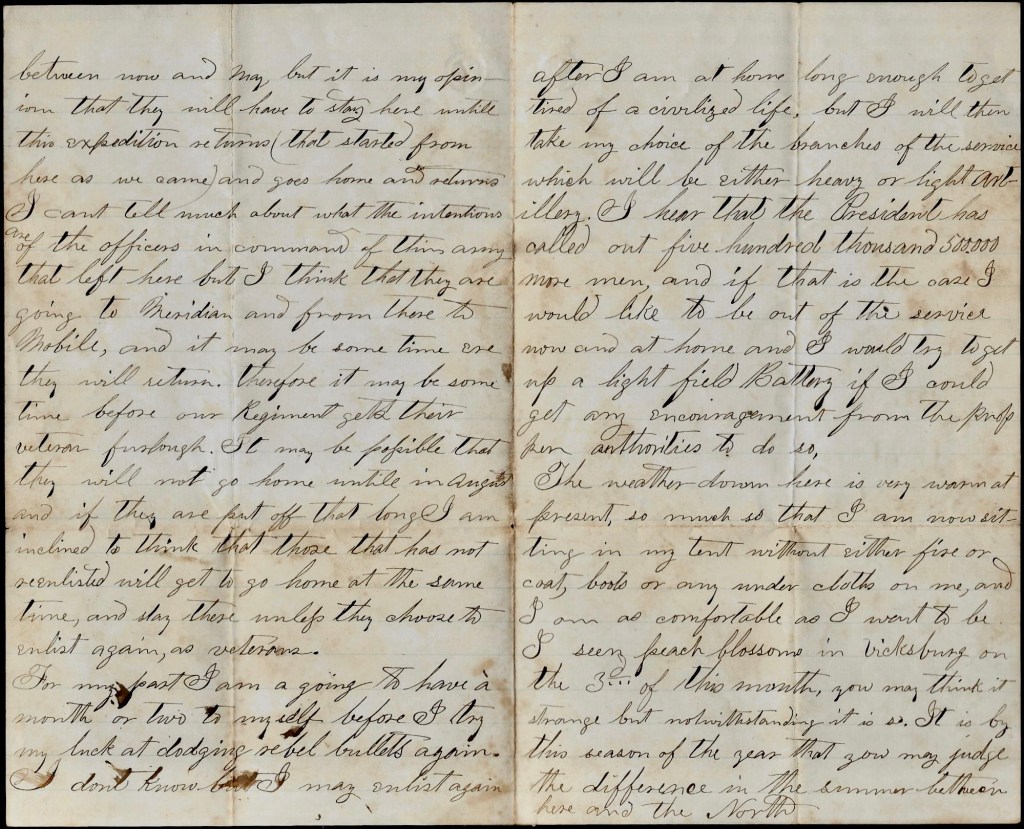 between now and May, but it is my opin-
ion that they will have to stay here untill
this expedition returns (that started from
here as we came) and goes home and returns
I cant tell much about what the intentions
are
of the officers in command of this army
that left here but I think that they are
going to Meridian and from there to
Mobile, and it may be some time ere
they will return. therefore it may be some
time before our Regiment gets their
veteran furlough. It may be possible that
they will not go home untile in august
and if they are put off that long I am
inclined to think that those that has not
reenlisted will get to go home at the same
time, and stay there unless they choose to
enlist again, as veterans.
For my part I am a going to have a
month or two to myself before I try
my luck at dodging rebel bullets again.
I dont know but I may enlist again
after I am at home long enough to get
tired of a civilized life, but I will then
take my choice of the branches of the service
which will be either heavy or light art-
illery. I hear that the President has
called out five hundred thousand 500.000
more men, and if that is the case I
would like to be out of the service
now and at home and I would try to get
up a light field Battery if I could
get any encouragement from the prop
per authorities to do so,
The weather down here is very warm at
present, so much so that I am now sit-
ting in my tent without either fire or
coat, boots or any under cloths on me, and
I am as comfortable as I want to be.
I seen peach blossoms in Vicksburg on
the 3rd of this month, you may think it
strange but notwithstanding it is so. It is by
this season of the year that you may judge
the difference in the summer between
here and the North